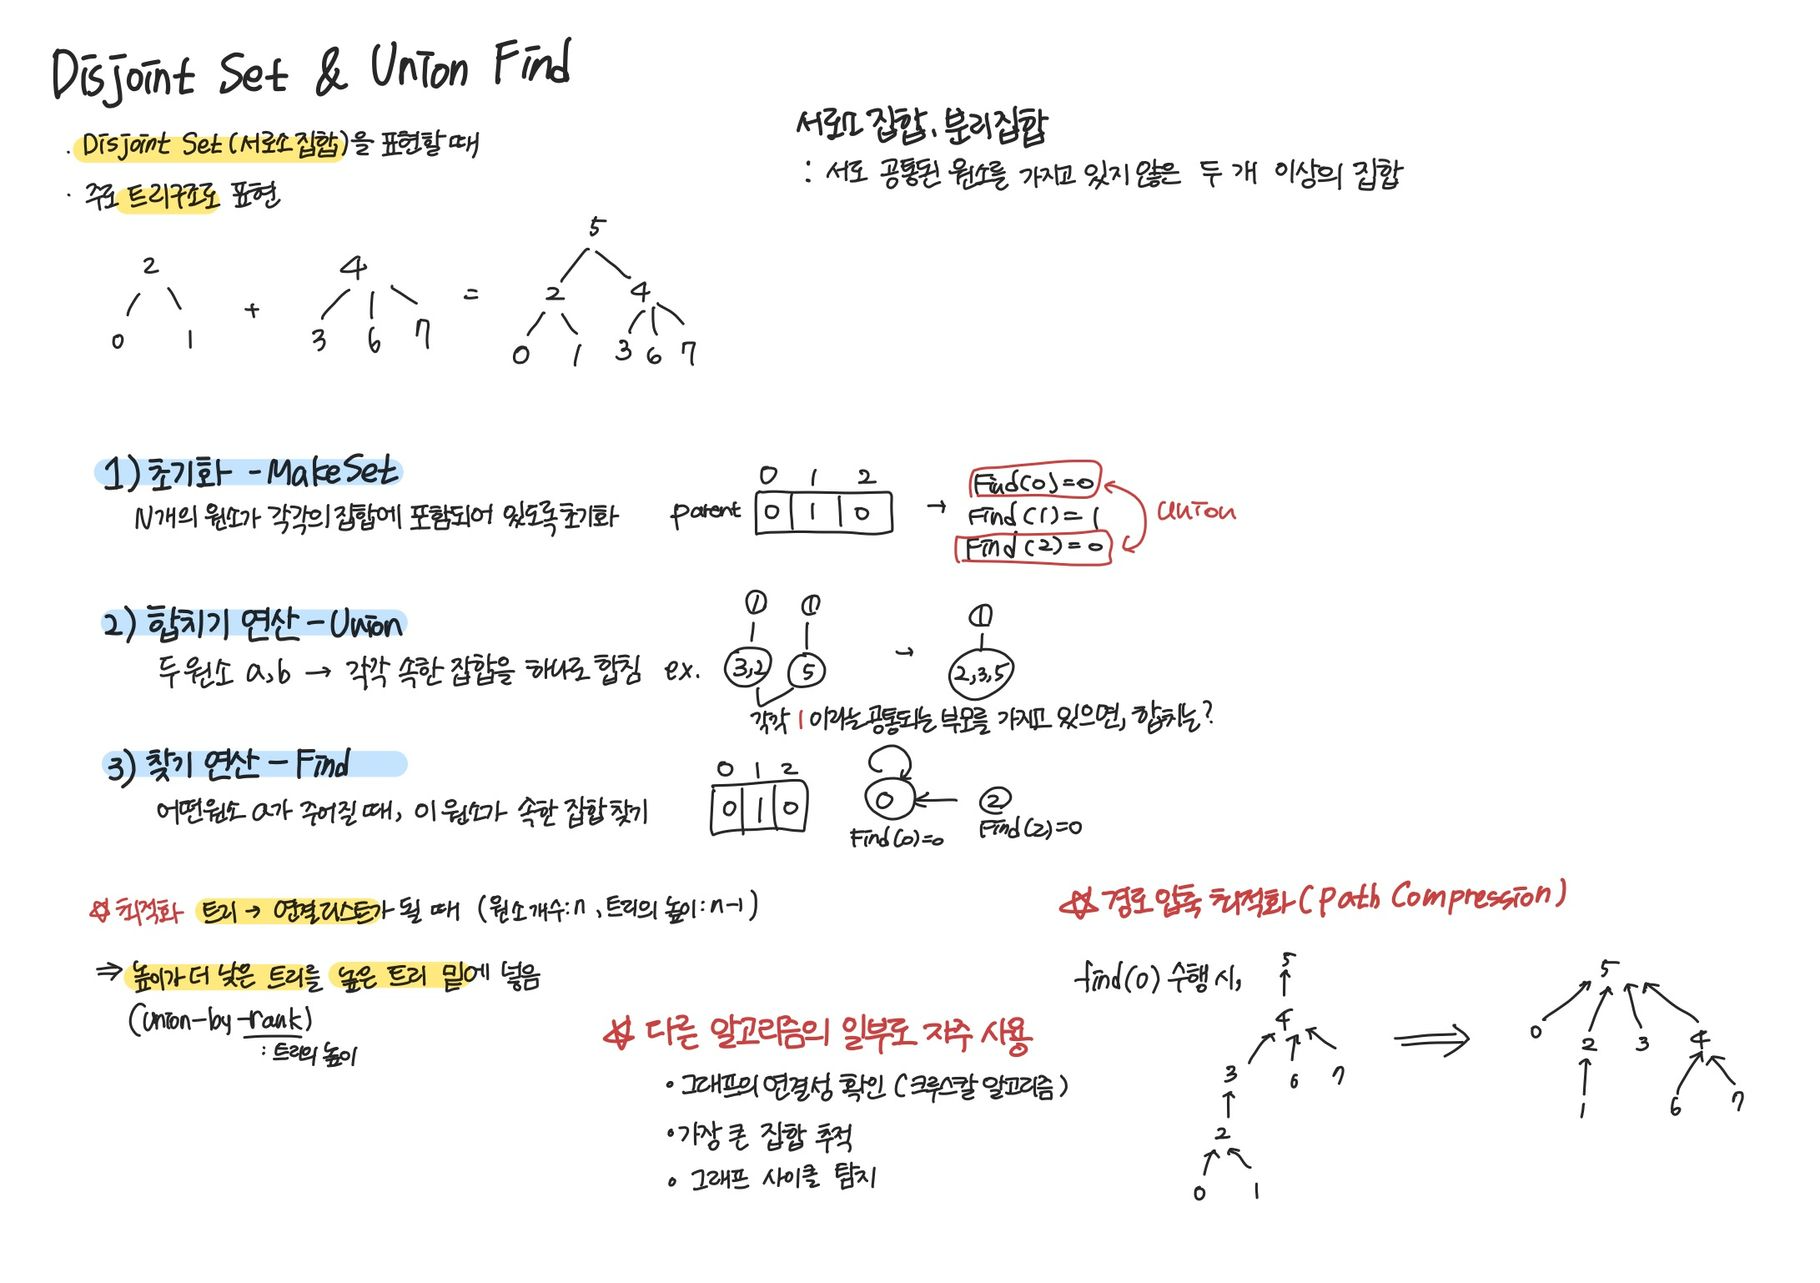 Disjoint Set & Union Find
· Disjoint Set (서로소 집합)을 표현할 때
· 주로 트리구조로 표현
서로소 집합, 분리집합
: 서로 공통된 원소를 가지고 있지 않은 두 개 이상의 집합
5
2 4 2 4
+ =
0 1 3 6 7 0 1 3 6 7
1) 초기화 - MakeSet
N개의 원소가 각각의 집합에 포함되어 있도록 초기화
0 1 2
parent 0 1 0 → Find(0)=0
Find(1)=1
Find(2)=0
union
2) 합치기 연산 - Union
두 원소 a,b → 각각 속한 집합을 하나로 합침 ex.
1 1 1
3,2 5 → 2,3,5
각각 1 이라는 공통되는 부모를 가지고 있으면, 합치는?
3) 찾기 연산 - Find
어떤 원소 a가 주어질 때, 이 원소가 속한 집합 찾기
0 1 2
0 1 0
0 ← 2
Find(0)=0 Find(2)=0
☆ 최적화 트리 → 연결리스트가 될 때 (원소개수:n, 트리의 높이:n-1)
⇒ 높이가 더 낮은 트리를 높은 트리 밑에 넣음
(union-by-rank)
: 트리의 높이
☆ 다른 알고리즘의 일부로 자주 사용
• 그래프의 연결성 확인 (크루스칼 알고리즘)
• 가장 큰 집합 추적
• 그래프 사이클 탐지
☆ 경로 압축 최적화 (Path Compression)
find(0) 수행 시,
5
4
3 6 7
2
0 1
⇒
5
0 2 3 4
1 6 7